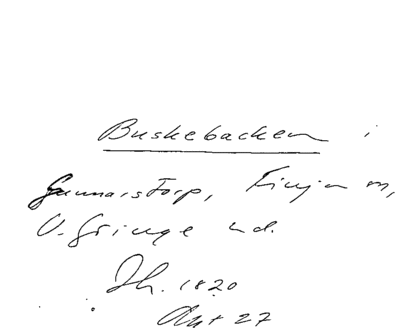 Buskebacken i
Gunnarstorp, Finja sn,
V. Göinge hd.
Dh. 1820
Akt 27